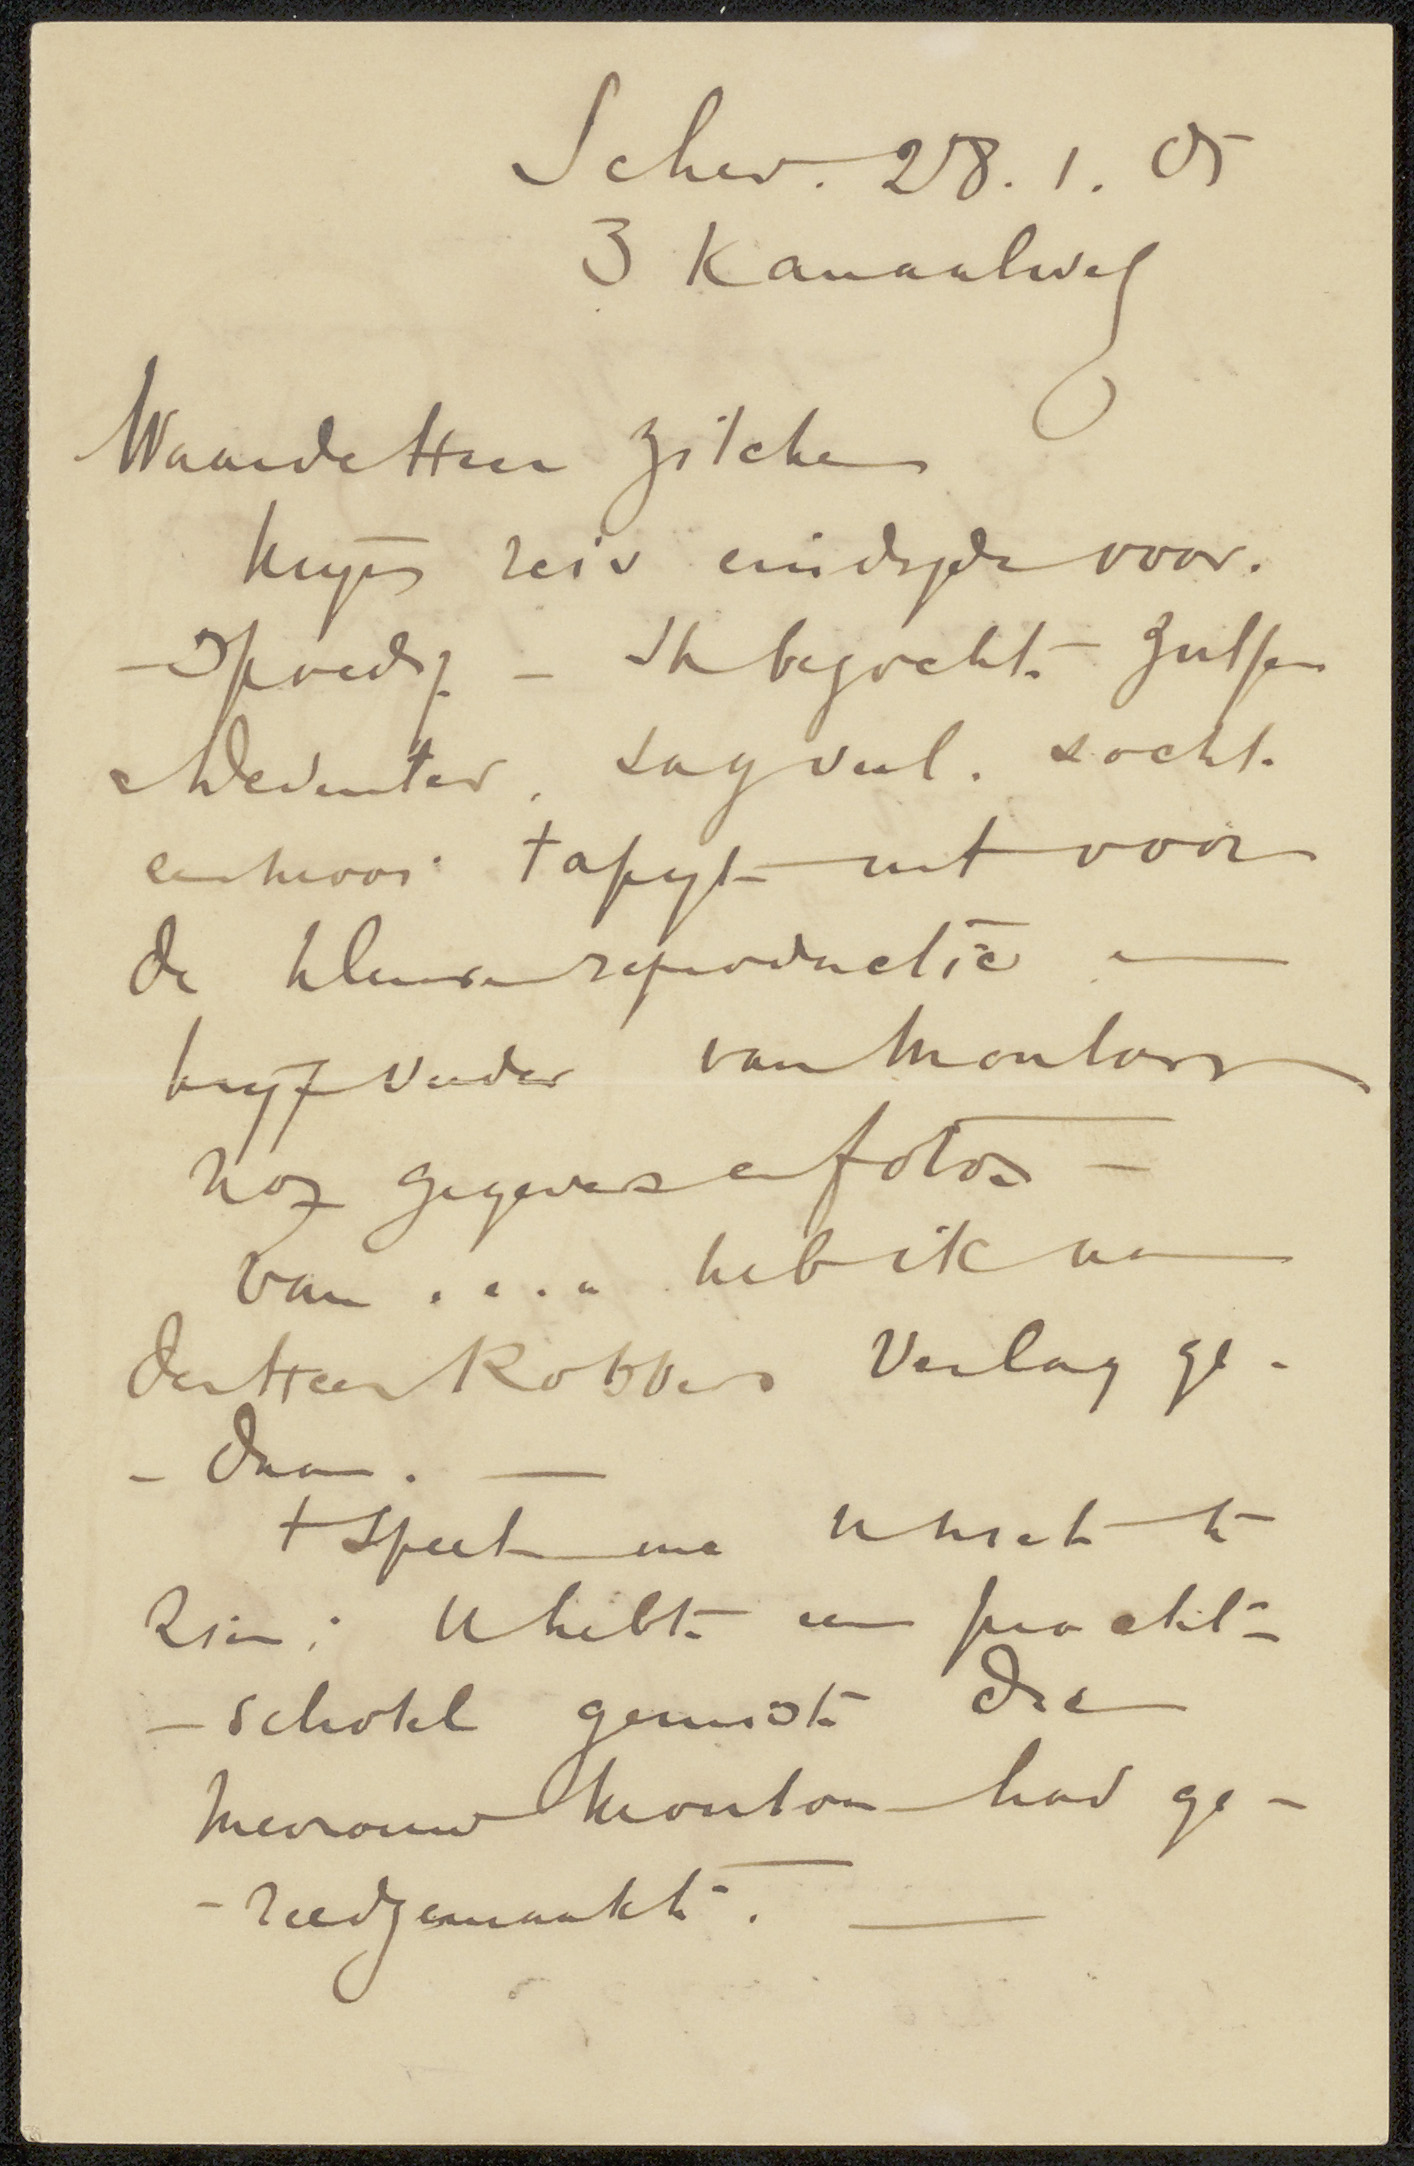 Schev. 28. 1. 05
3 Kanaalweg
Waarde Heer Zilcken
Mijn reis eindigde voor-
-spoedig - Ik bezocht Zutfen
Deventer, zag veel. zocht
een mooi tapyt uit voor
de kleurenreproductie en
kryf verder van Mouton
nog gegevens en fotos -
Van .... heb ik aan
den Heer Robbers verlag ge-
- daan. —
t Speet me U niet te
zien; U hebt een pracht-
- schotel gemist die
Mevrouw Mouton had ge-
- reedgemaakt. —